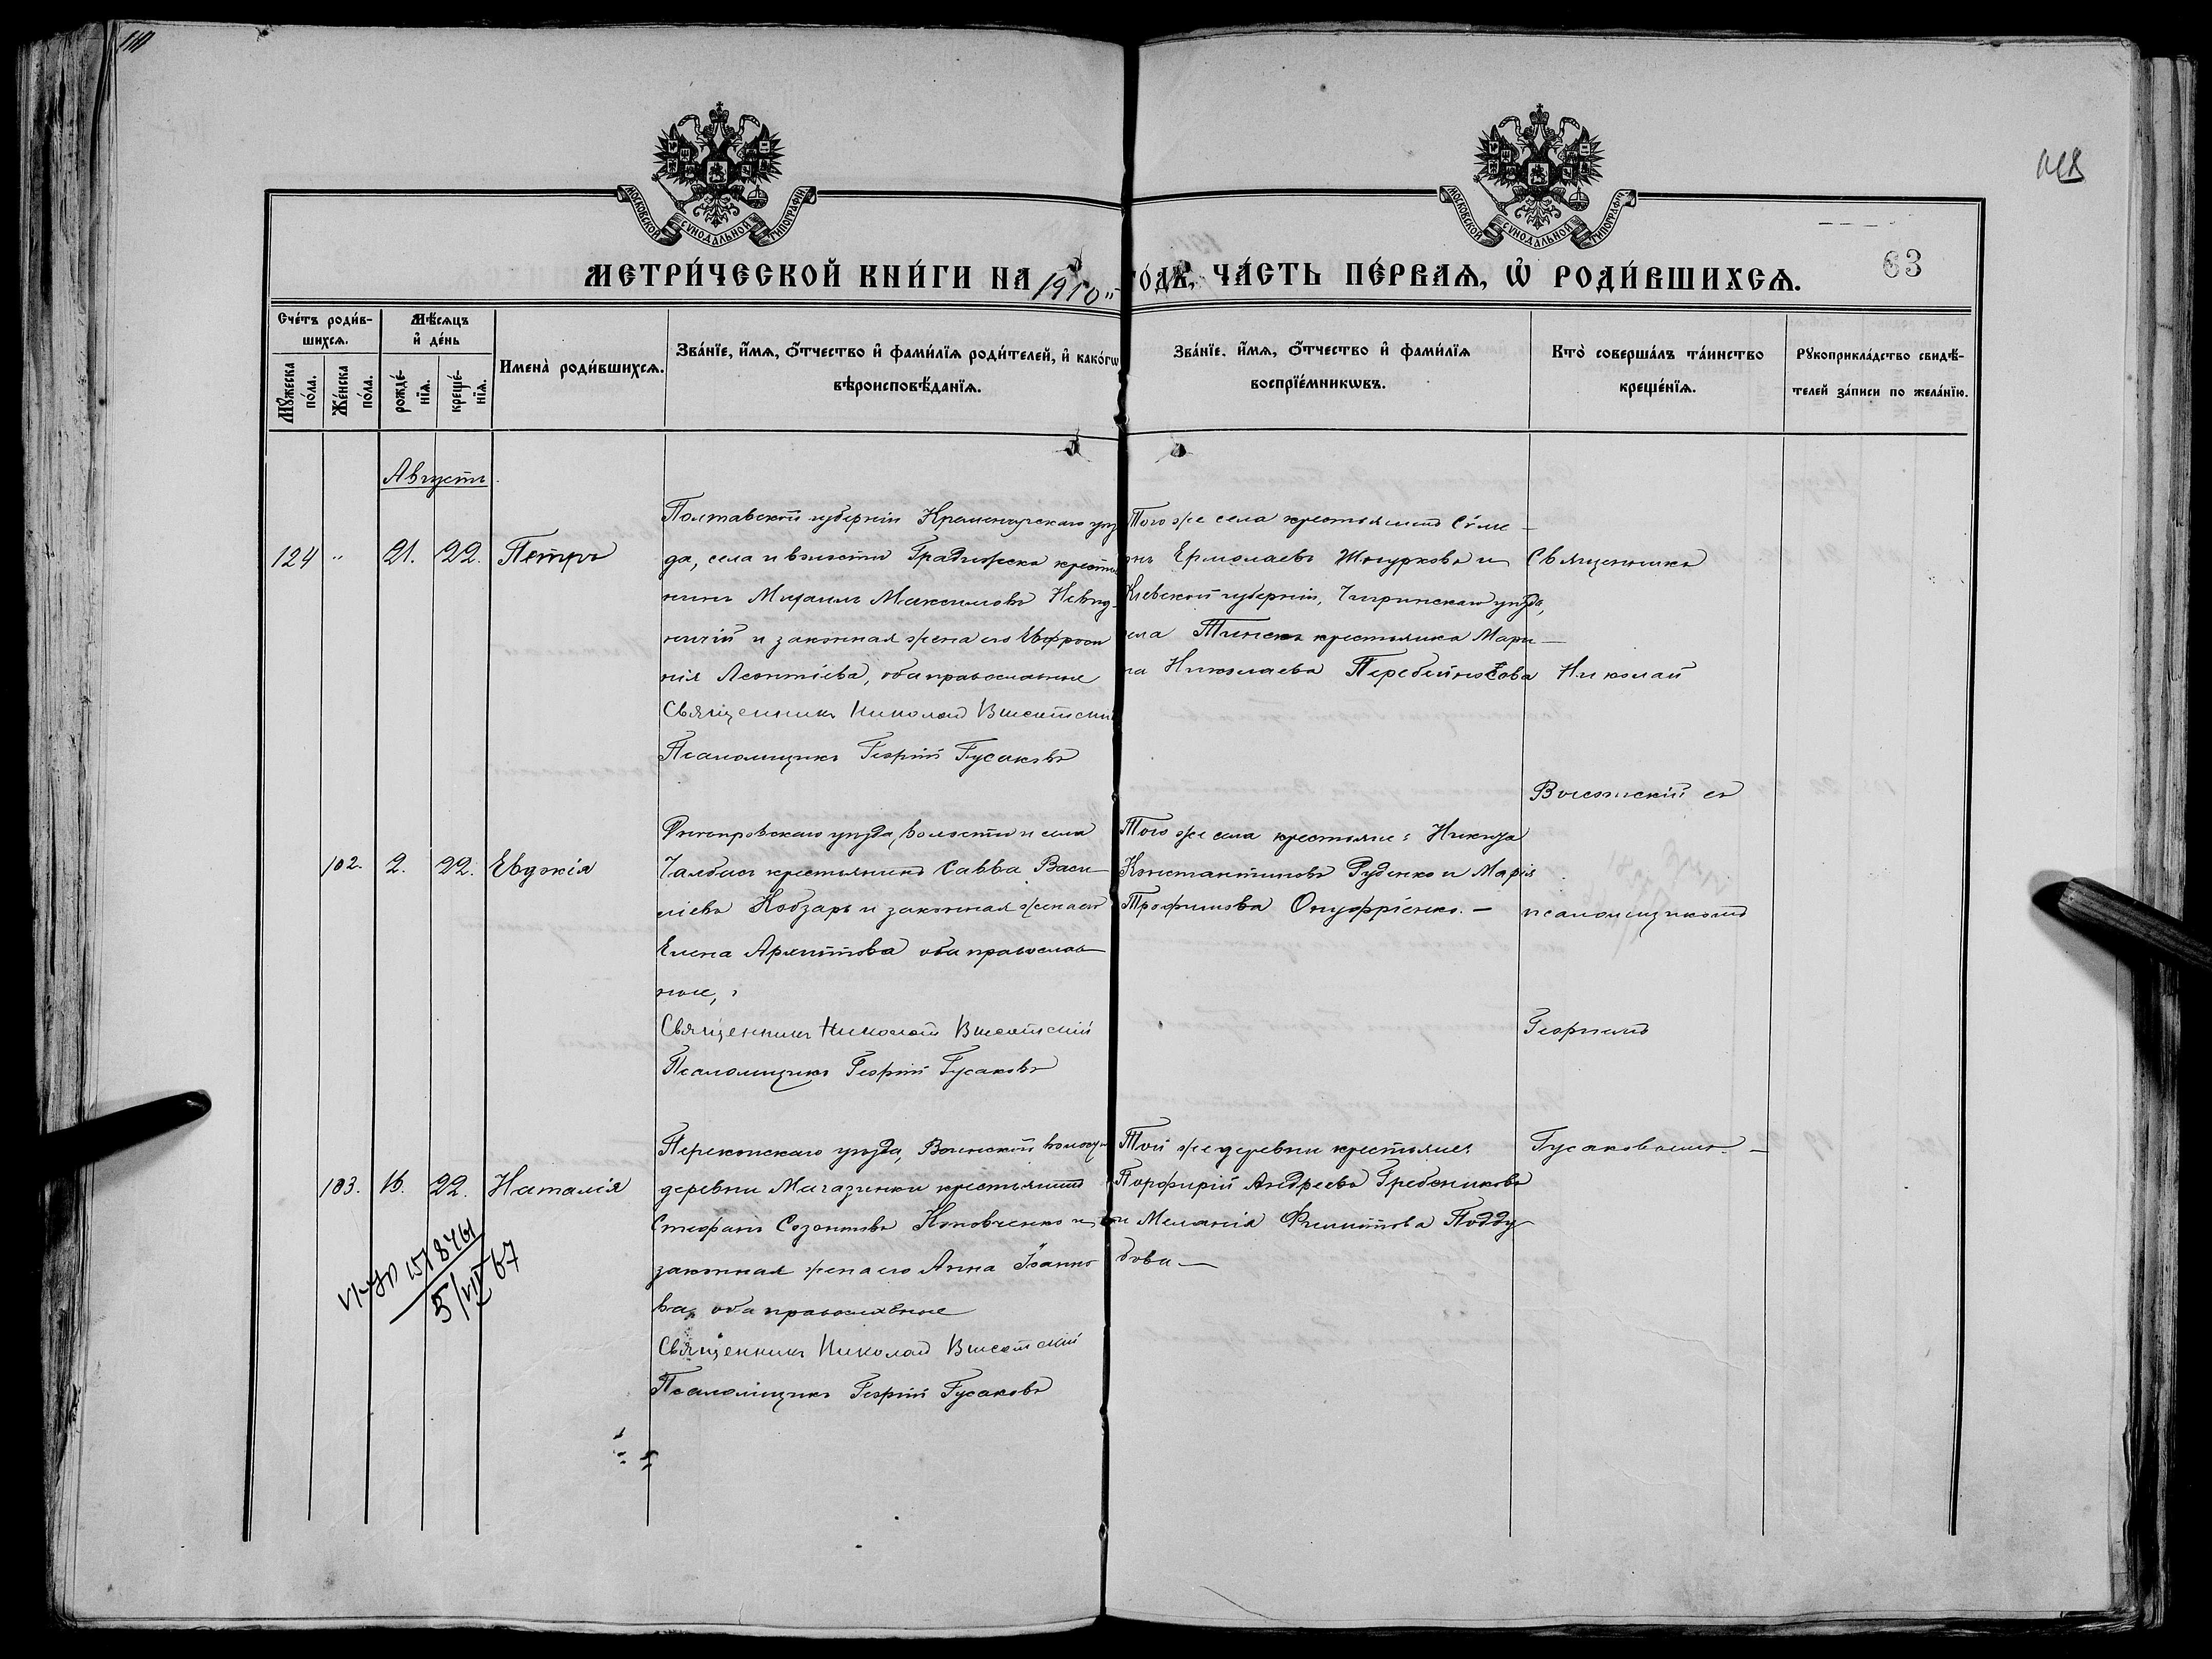 МОСКОВСКОЙ СѴНОДАЛЬНОЙ ТИПОГРАФІИ
МОСКОВСКОЙ СѴНОДАЛЬНОЙ ТИПОГРАФІИ
МЕТРИ́ЧЕСКОЙ КНИ́ГИ НА 1910 ГО́ДЪ, ЧА́СТЬ ПЕ́РВАѦ, Ѿ РОДИ́ВШИХСѦ.
63
Сче́тъ роди́в-
шихсѧ.
Мꙋ́жеска
по́ла.
Же́нска
по́ла.
Мѣ́сѧцъ
и҆ де́нь
рожде́-
нїѧ.
креще́-
нїѧ.
Имена̀ роди́вшихсѧ.
Зва́нїе, и҆́мѧ, ѻ҆́тчество и҆ фами́лїѧ роди́телей, и҆ како́гѡ
вѣроисповѣ́данїѧ.
Зва́нїе. и҆́мѧ, ѻ҆́тчество и҆ фами́лїѧ
воспрїе́мникѡвъ.
Кто̀ соверша́лъ та́инство
креще́нїѧ.
Рꙋкоприкла́дство свидѣ́-
телей за́писи по жела́нїю.
Августъ
124 " 21. 22. Петръ
Полтавской губерніи Кременчугскаго уѣз
да, села и волости Градижска крестья
нинъ Михаилъ Максимовъ
и законная жена его Евфроси
нія Леонтіева, оба православные
Священникъ Николай Высотскій
Псаломщикъ Георгій Гусаковъ
Того же села крестьянинъ Симе-
онъ Ермолаевъ Шкурковъ и
Кіевской губерніи, Чигринскаго уѣзда,
села крестьянка Мари-
на Николаева Перебейносова
Священникъ
Николай
Высотскій съ
псаломщикомъ
Георгіемъ
Гусаковымъ. -
102. 2. 22. Евдокія
Днѣпровскаго уѣзда, волости и села
Чалбасъ крестьянинъ Савва Васи-
ліевъ Кобзарь и законная жена его
Елена Архиппова оба православ-
ные,
Священникъ Николай Высотскій
Псаломщикъ Георгій Гусаковъ
Того же села крестьяне: Никита
Константиновъ Руденко и Марія
Трофимова Онуфріенко. -
103. 16. 22. Наталія
Перекопскаго уѣзда, Воинской волости
деревни Магазинки крестьянинъ
Стефанъ Созонтовъ Коновченко и
законная жена его Анна Іоанно
ва, оба православные
Священникъ Николай Высотскій
Псаломщикъ Георгій Гусаковъ
Той же деревни крестьяне:
Порфирій Андреевъ Гребенниковъ
и Меланія ФилипповаПодду-
бова -
5/VII 67